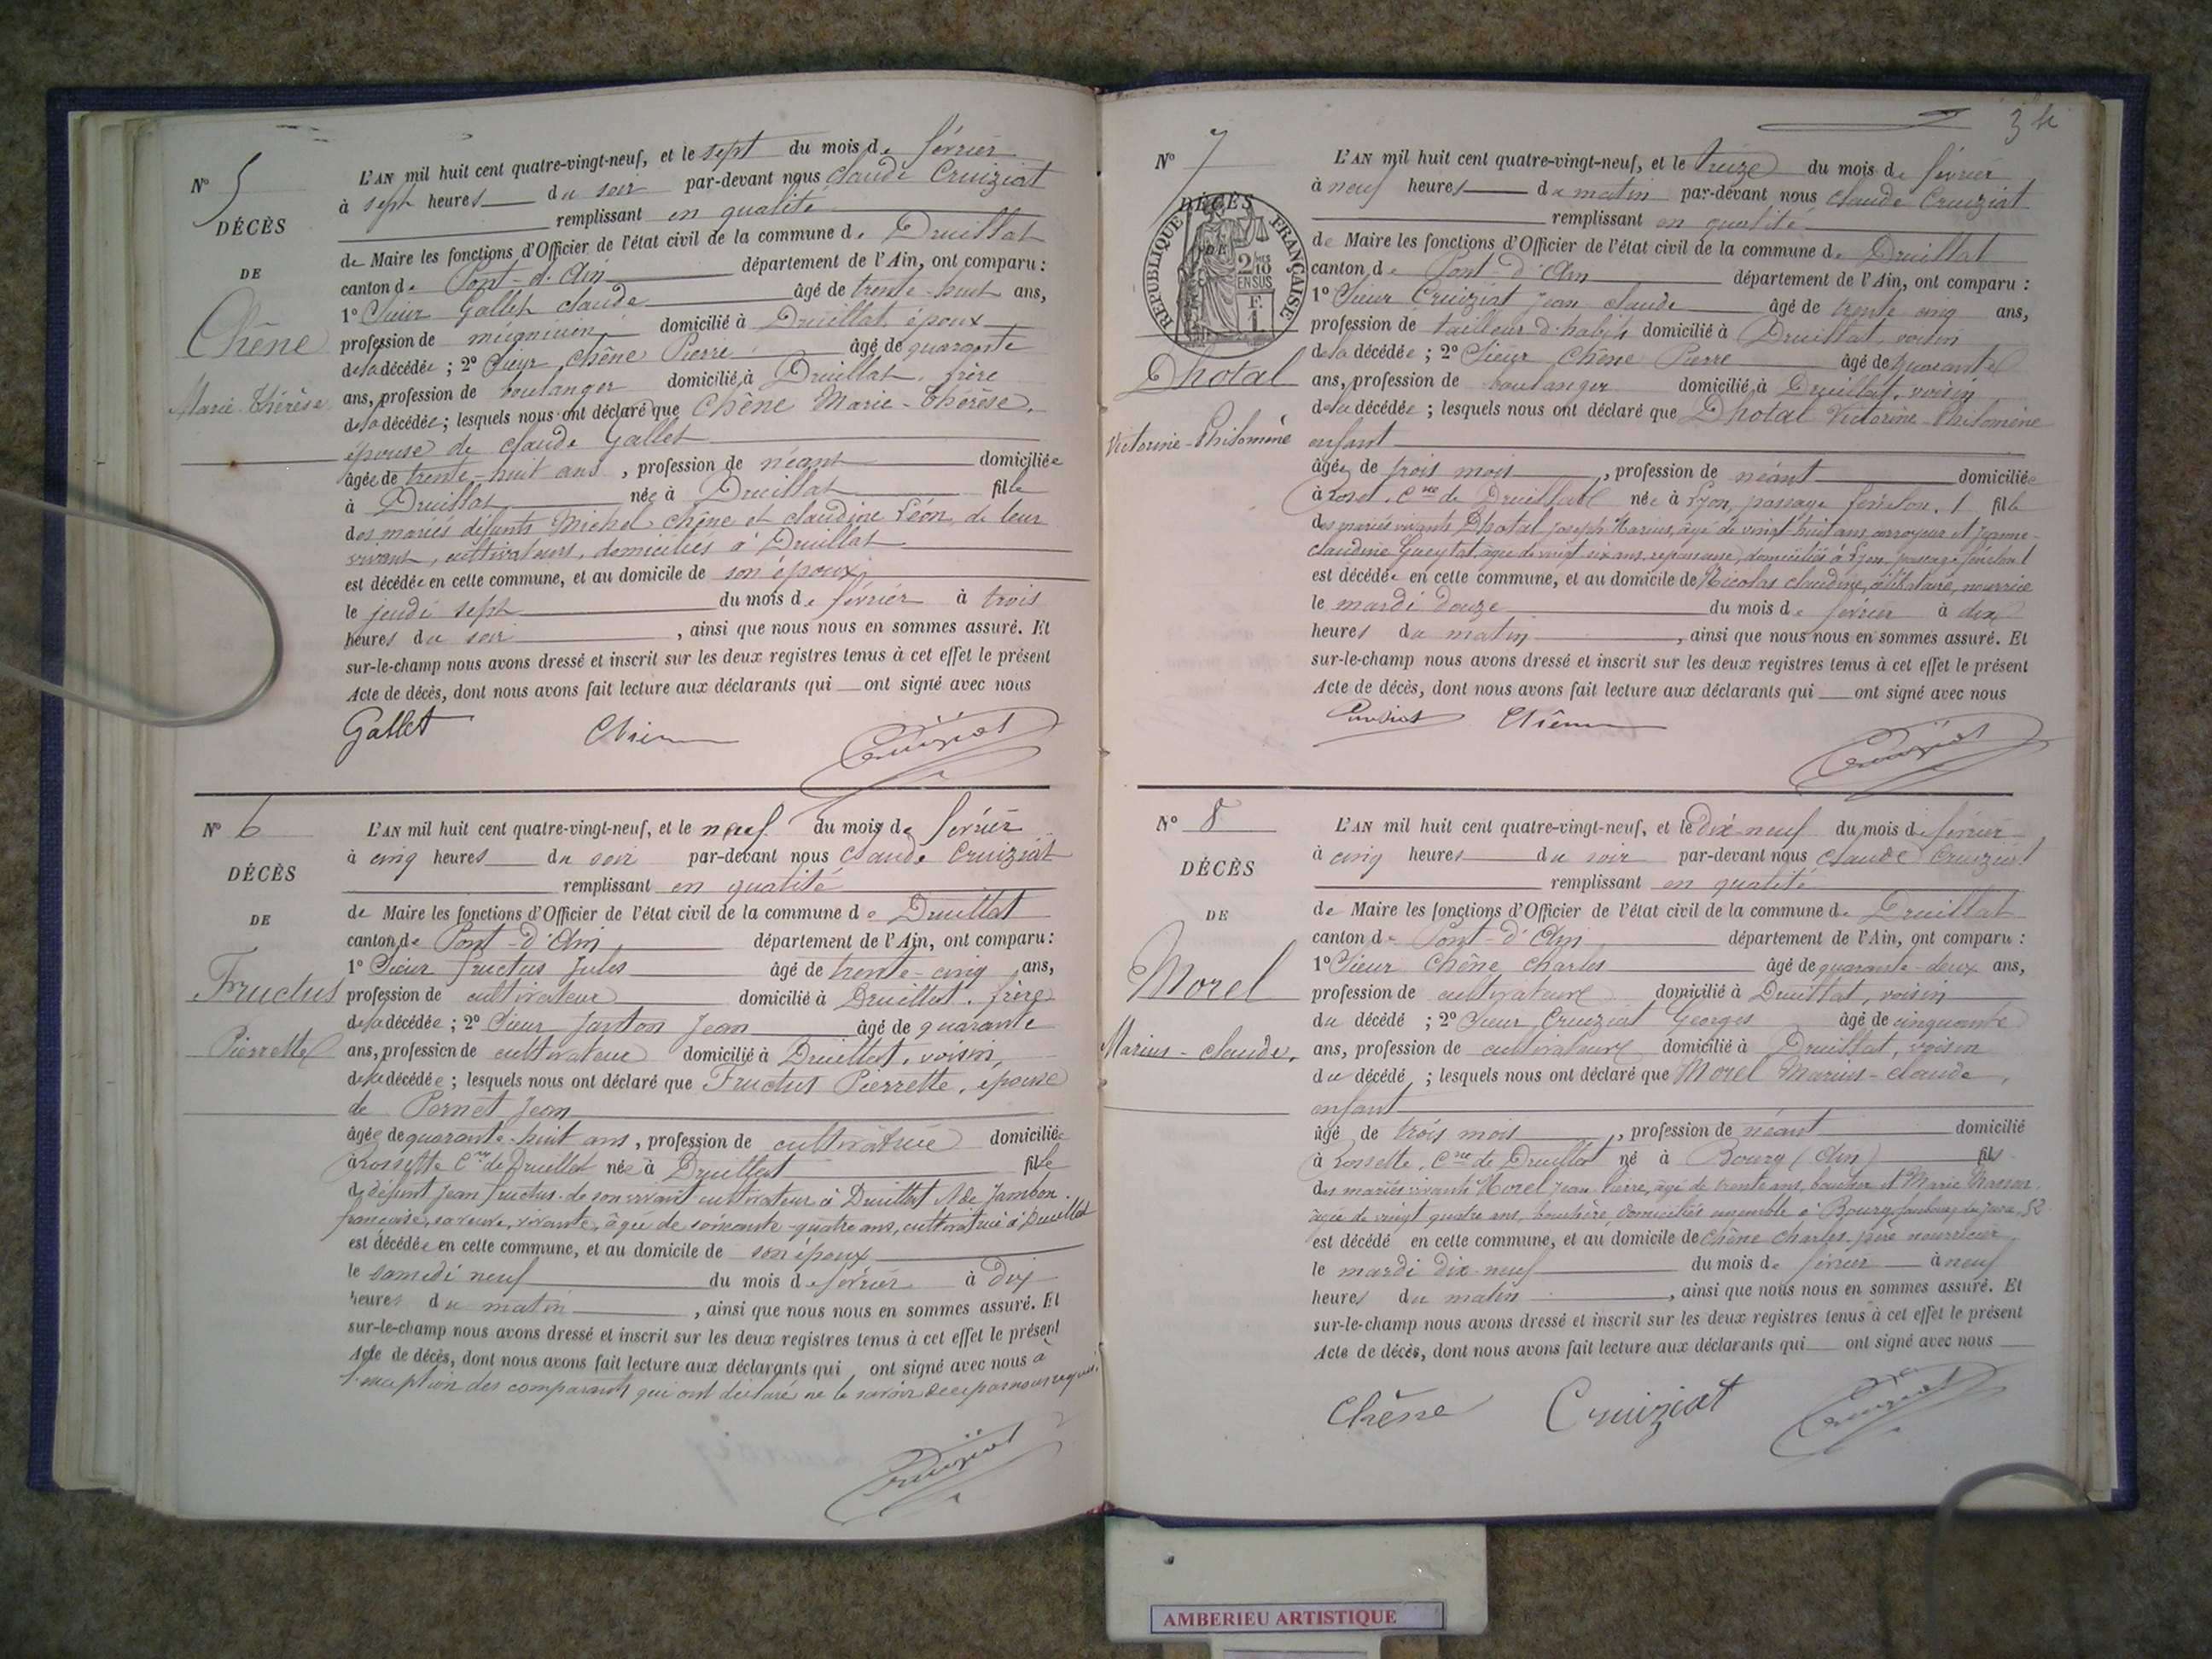 N° 5
DÉCÈS
DE
Chêne
Marie-Thérèse
L'AN mil huit cent quatre-vingt-neuf, et le sept du mois de février
à sept heures du soir par-devant nous Claude Cruiziat
remplissant en qualité
de Maire les fonctions d'Officier de l'état civil de la commune de Druillat
canton de Pont-d'Ain département de l'Ain, ont comparu :
1° Sieur Gallet Claude âgé de trente-huit ans,
profession de domicilié à Druillat époux
de la décédée ; 2° Sieur Chêne Pierre âgé de quarante
ans, profession de boulanger domicilié à Druillat, frère
de la décédée ; lesquels nous ont déclaré que Chêne Marie-Thérèse,
épouse de Claude Gallet
âgée de trente-huit ans, profession de néant domiciliée
à Druillat née à Druillat fille
des mariés défunts Michel Chêne et Claudine Léon, de leur
vivant, cultivateurs, domiciliés à Druillat
est décédée en cette commune, et au domicile de son époux
le jeudi sept du mois de février à trois
heures du soir, ainsi que nous nous en sommes assuré. Et
sur-le-champ nous avons dressé et inscrit sur les deux registres tenus à cet effet le présent
Acte de décès, dont nous avons fait lecture aux déclarants qui ont signé avec nous
Gallet Chêne Cruiziat
N° 6
DÉCÈS
DE
Fructus
Pierrette
L'AN mil huit cent quatre-vingt-neuf, et le neuf du mois de février
à cinq heures du soir par-devant nous Claude Cruiziat
remplissant en qualité
de Maire les fonctions d'Officier de l'état civil de la commune de Druillat
canton de Pont-d'Ain département de l'Ain, ont comparu :
1° Sieur Fructus Jules âgé de trente-cinq ans,
profession de cultivateur domicilié à Druillat, frère
de la décédée ; 2° Sieur Janton Jean âgé de quarante
ans, profession de cultivateur domicilié à Druillat, voisin,
de la décédée ; lesquels nous ont déclaré que Fructus Pierrette, épouse
de Pernet Jean
âgée de quarante-huit ans, profession de cultivatrice domiciliée
à Rossette Cne de Druillat née à Druillat fille
de défunt Jean Fructus de son vivant cultivateur à Druillat et de Jambon
françoise, sa veuve, vivante, âgée de soixante-quatre ans, cultivatrice à Druillat
est décédée en cette commune, et au domicile de son époux
le samedi neuf du mois de février à dix
heures du matin, ainsi que nous nous en sommes assuré. Et
sur-le-champ nous avons dressé et inscrit sur les deux registres tenus à cet effet le présent
Acte de décès, dont nous avons fait lecture aux déclarants qui ont signé avec nous à
l'exception des comparants qui ont déclaré ne le savoir de ce par nous requis.
Cruiziat
34
N° 7
DÉCÈS
DE
RÉPUBLIQUE FRANÇAISE
2/10 EN SUS
F. 1
Dhotal
Victorine-Philomène
L'AN mil huit cent quatre-vingt-neuf, et le treize du mois de février
à neuf heures du matin par-devant nous Claude Cruiziat
remplissant en qualité
de Maire les fonctions d'Officier de l'état civil de la commune de Druillat
canton de Pont-d'Ain département de l'Ain, ont comparu :
1° Sieur Cruiziat Jean Claude âgé de trente cinq ans,
profession de tailleur d'habits domicilié à Druillat, voisin
de la décédée ; 2° Sieur Chêne Pierre âgé de quarante
ans, profession de boulanger domicilié à Druillat, voisin
de la décédée ; lesquels nous ont déclaré que Dhotal Victorine-Philomène
enfant
âgée de trois mois, profession de néant domiciliée
à Cne de Druillat née à Lyon, passage fénelon, 1 fille
des mariés vivants Dhotal Joseph Marius, âgé de vingt-huit ans, corroyeur et Jeanne-
Claudine Gueytat, âgée de vingt six ans, repasseuse, domiciliés à Lyon, passage fénelon 1
est décédée en cette commune, et au domicile de Nicolas Claudine, célibataire, nourrice
le mardi douze du mois de février à dix
heures du matin, ainsi que nous nous en sommes assuré. Et
sur-le-champ nous avons dressé et inscrit sur les deux registres tenus à cet effet le présent
Acte de décès, dont nous avons fait lecture aux déclarants qui ont signé avec nous
Cruiziat Chêne Cruiziat
N° 8
DÉCÈS
DE
Morel
Marius-Claude,
L'AN mil huit cent quatre-vingt-neuf, et le dix-neuf du mois de février
à cinq heures du soir par-devant nous Claude Cruiziat
remplissant en qualité
de Maire les fonctions d'Officier de l'état civil de la commune de Druillat
canton de Pont-d'Ain département de l'Ain, ont comparu :
1° Sieur Chêne Charles âgé de quarante-deux ans,
profession de cultivateur domicilié à Druillat, voisin
du décédé ; 2° Sieur Cruiziat Georges âgé de cinquante
ans, profession de cultivateur domicilié à Druillat, voisin
du décédé ; lesquels nous ont déclaré que Morel Marius-Claude,
enfant
âgé de trois mois, profession de néant domicilié
à Rossette, Cne de Druillat né à Bourg (Ain) fils
des mariés vivants Morel Jean Pierre, âgé de trente ans, boucher et Marie
âgée de vingt quatre ans, bouchère, domiciliés ensemble à Bourg, faubourg du Jura, 52
est décédé en cette commune, et au domicile de Chêne Charles, père nourricier
le mardi dix-neuf du mois de février à neuf
heures du matin, ainsi que nous nous en sommes assuré. Et
sur-le-champ nous avons dressé et inscrit sur les deux registres tenus à cet effet le présent
Acte de décès, dont nous avons fait lecture aux déclarants qui ont signé avec nous
Chêne Cruiziat Cruiziat
AMBERIEU ARTISTIQUE